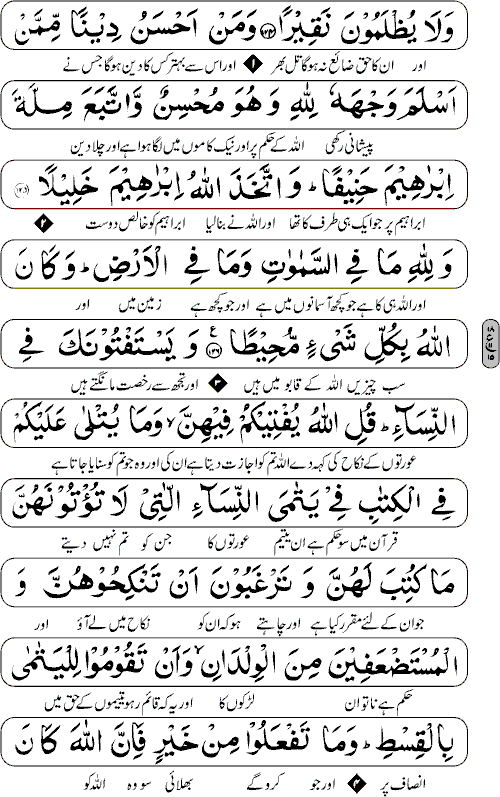 وَلَا يُظْلَمُوْنَ نَقِيْرًا ﴿۱۲۴﴾ وَمَنْ اَحْسَنُ دِيْنًا مِّمَّنْ
اور ان کا حق ضائع نہ ہوگا تل بھر ۱ اور اس سے بہتر کس کا دین ہوگا جس نے
اَسْلَمَ وَجْهَهٗ لِلّٰهِ وَهُوَ مُحْسِنٌ وَّاتَّبَعَ مِلَّةَ
پیشانی رکھی اللہ کے حکم پر اور نیک کاموں میں لگا ہوا ہے اور چلا دین
اِبْرٰهِيْمَ حَنِيْفًا ؕ وَاتَّخَذَ اللّٰهُ اِبْرٰهِيْمَ خَلِيْلًا ﴿۱۲۵﴾
ابراہیم پر جو ایک ہی طرف کا تھا اور اللہ نے بنا لیا ابراہیم کو خالص دوست ۲
وَلِلّٰهِ مَا فِى السَّمٰوٰتِ وَمَا فِى الْاَرْضِ ؕ وَكَانَ
اور اللہ ہی کا ہے جو کچھ آسمانوں میں ہے اور جو کچھ ہے زمین میں اور
اللّٰهُ بِكُلِّ شَىْءٍ مُّحِيْطًا ﴿۱۲۶﴾ ع وَيَسْتَفْتُوْنَكَ فِى
سب چیزیں اللہ کے قابو میں ہیں ۳ اور تجھ سے رخصت مانگتے ہیں
النِّسَآءِ ؕ قُلِ اللّٰهُ يُفْتِيْكُمْ فِيْهِنَّ ۙ وَمَا يُتْلٰى عَلَيْكُمْ
عورتوں کے نکاح کی کہہ دے اللہ تم کو اجازت دیتا ہے ان کی اور وہ جو تم کو سنایا جاتا ہے
فِى الْكِتٰبِ فِىْ يَتٰمَى النِّسَآءِ الّٰتِىْ لَا تُؤْتُوْنَهُنَّ
قرآن میں سو حکم ہے ان یتیم عورتوں کا جن کو تم نہیں دیتے
مَا كُتِبَ لَهُنَّ وَتَرْغَبُوْنَ اَنْ تَنْكِحُوْهُنَّ وَ
جو ان کے لئے مقرر کیا ہے اور چاہتے ہو کہ ان کو نکاح میں لے آؤ اور
الْمُسْتَضْعَفِيْنَ مِنَ الْوِلْدَانِ ۙ وَاَنْ تَقُوْمُوْا لِلْيَتٰمٰى
حکم ہے ناتوان لڑکوں کا اور یہ کہ قائم رہو یتیموں کے حق میں
بِالْقِسْطِ ؕ وَمَا تَفْعَلُوْا مِنْ خَيْرٍ فَاِنَّ اللّٰهَ كَانَ
انصاف پر ۴ اور جو کرو گے بھلائی سو وہ اللہ کو